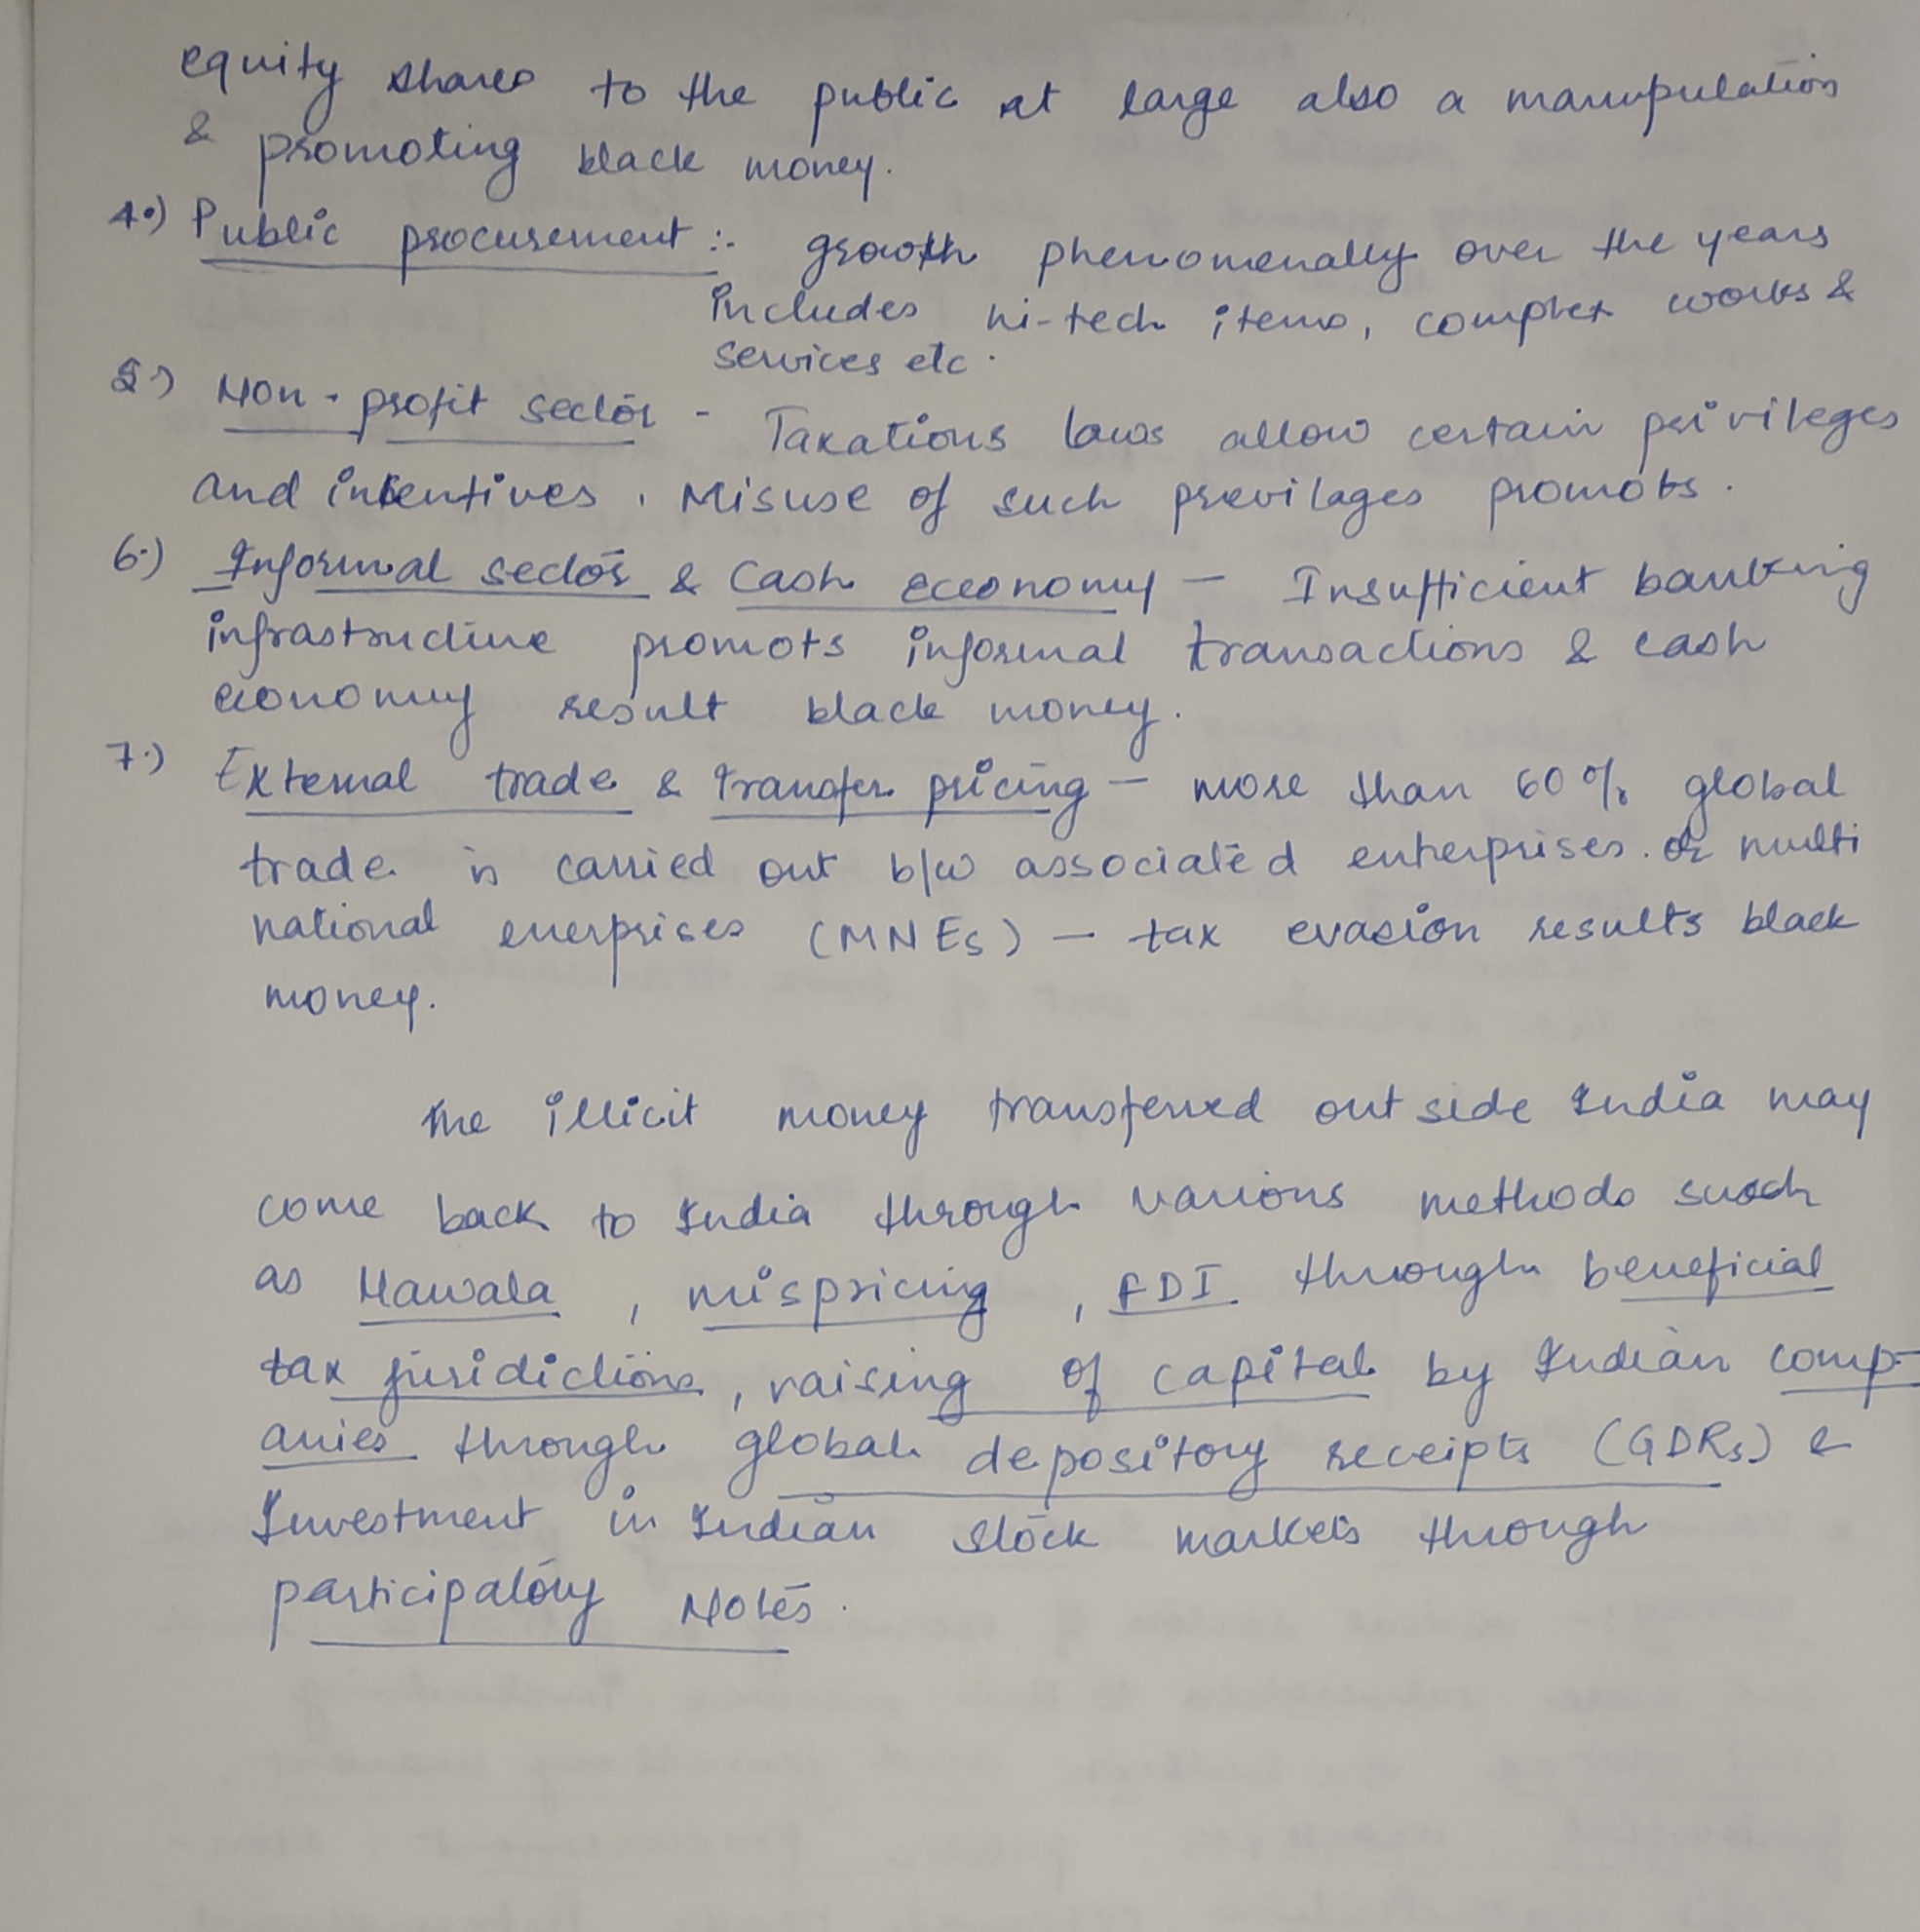 equity shares to the public at large also a manupulation
& promoting black money.
4.) Public procurement :- growth phenomenally over the years
includes hi-tech items, complex works &
services etc.
5.) Non-profit sector - Taxations laws allow certain privileges
and intentives. Misuse of such previlages promots.
6.) Informal sector & Cash economy - Insufficient banking
infrastructure promots informal transactions & cash
economy result black money.
7.) External trade & transfer pricing - more than 60% global
trade is carried out b/w associated enterprises. or multi
national enerprises (MNEs) - tax evasion results black
money.
The illicit money transferred outside India may
come back to India through various methods such
as Hawala, mispricing, FDI through beneficial
tax juridictions, raising of capital by Indian comp-
anies through global depository receipts (GDRs) &
Investment in Indian stock markets through
participatory Notes.